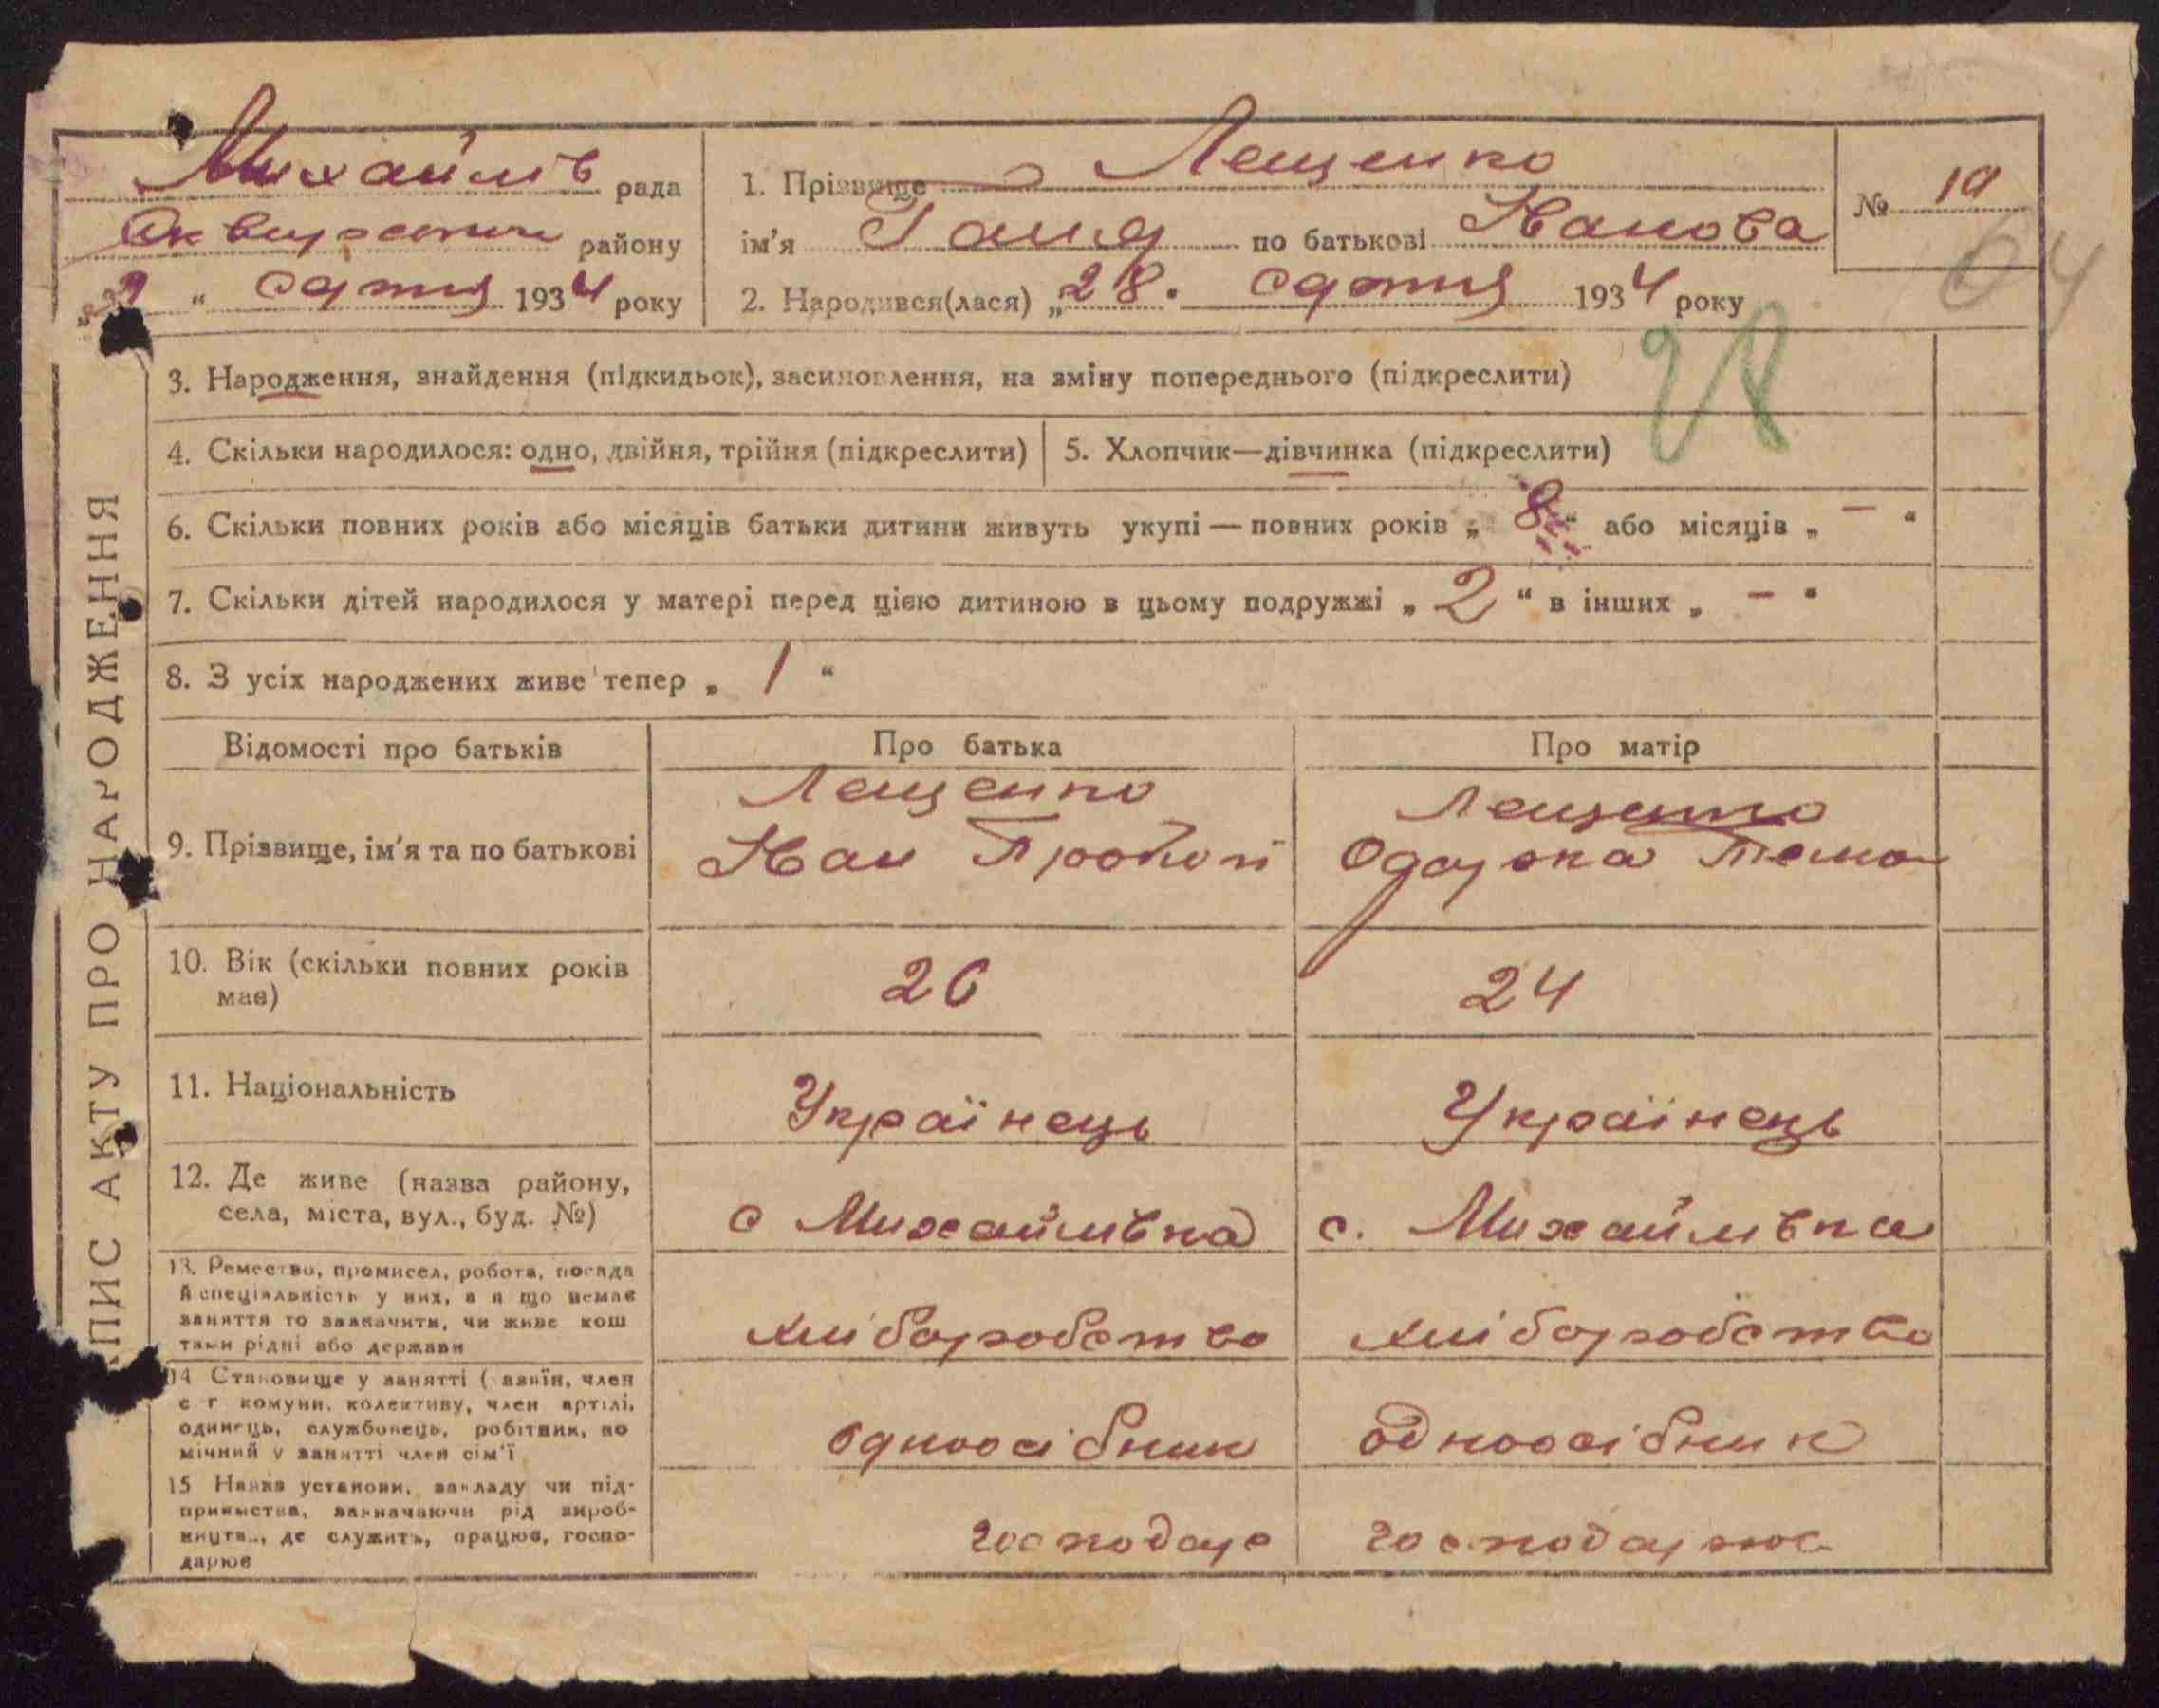 Михайлів рада
району
" сотня 1934 року
1. Прізвище Лещенко
ім'я Ганя по батькові Иванова
2. Народився(лася) „28. 1934 року
№ 19
64
ЗАПИС АКТУ ПРО НАРОДЖЕННЯ
3. Народження, знайдення (підкидьок), засиновлення, на зміну попереднього (підкреслити)
4. Скільки народилося: одно, двійня, трійня (підкреслити)
5. Хлопчик—дівчинка (підкреслити)
6. Скільки повних років або місяців батьки дитини живуть укупі — повних років „ 8 “ або місяців „ — “
7. Скільки дітей народилося у матері перед цією дитиною в цьому подружжі „ 2 “ в інших „ — “
8. З усіх народжених живе тепер „ 1 “
Відомості про батьків
Про батька
Про матір
9. Прізвище, ім'я та по батькові
Лещенко
Иван
Лещенко
Одарка
10. Вік (скільки повних років
має)
26
24
11. Національність
Українець
Українець
12. Де живе (назва району,
села, міста, вул., буд. №)
с Михайлівка
с. Михайлівка
13. Ремество, промисел, робота, посада
й спеціяльність у них, а я що немає
заняття то зазначити, чи живе кош
тами рідні або держави
хліборобство
хліборобство
14 Становище у занятті ( азяїн, член
с г комуни, колективу, член артілі,
одинець, службовець, робітник, по
мічний у занятті член сім'ї
одноосібник
одноосібник
15 Назва установи, закладу чи під-
приємства, зазначаючи рід вироб-
ництв.., де служить, працює, госпо-
дарює
господарс
господарює